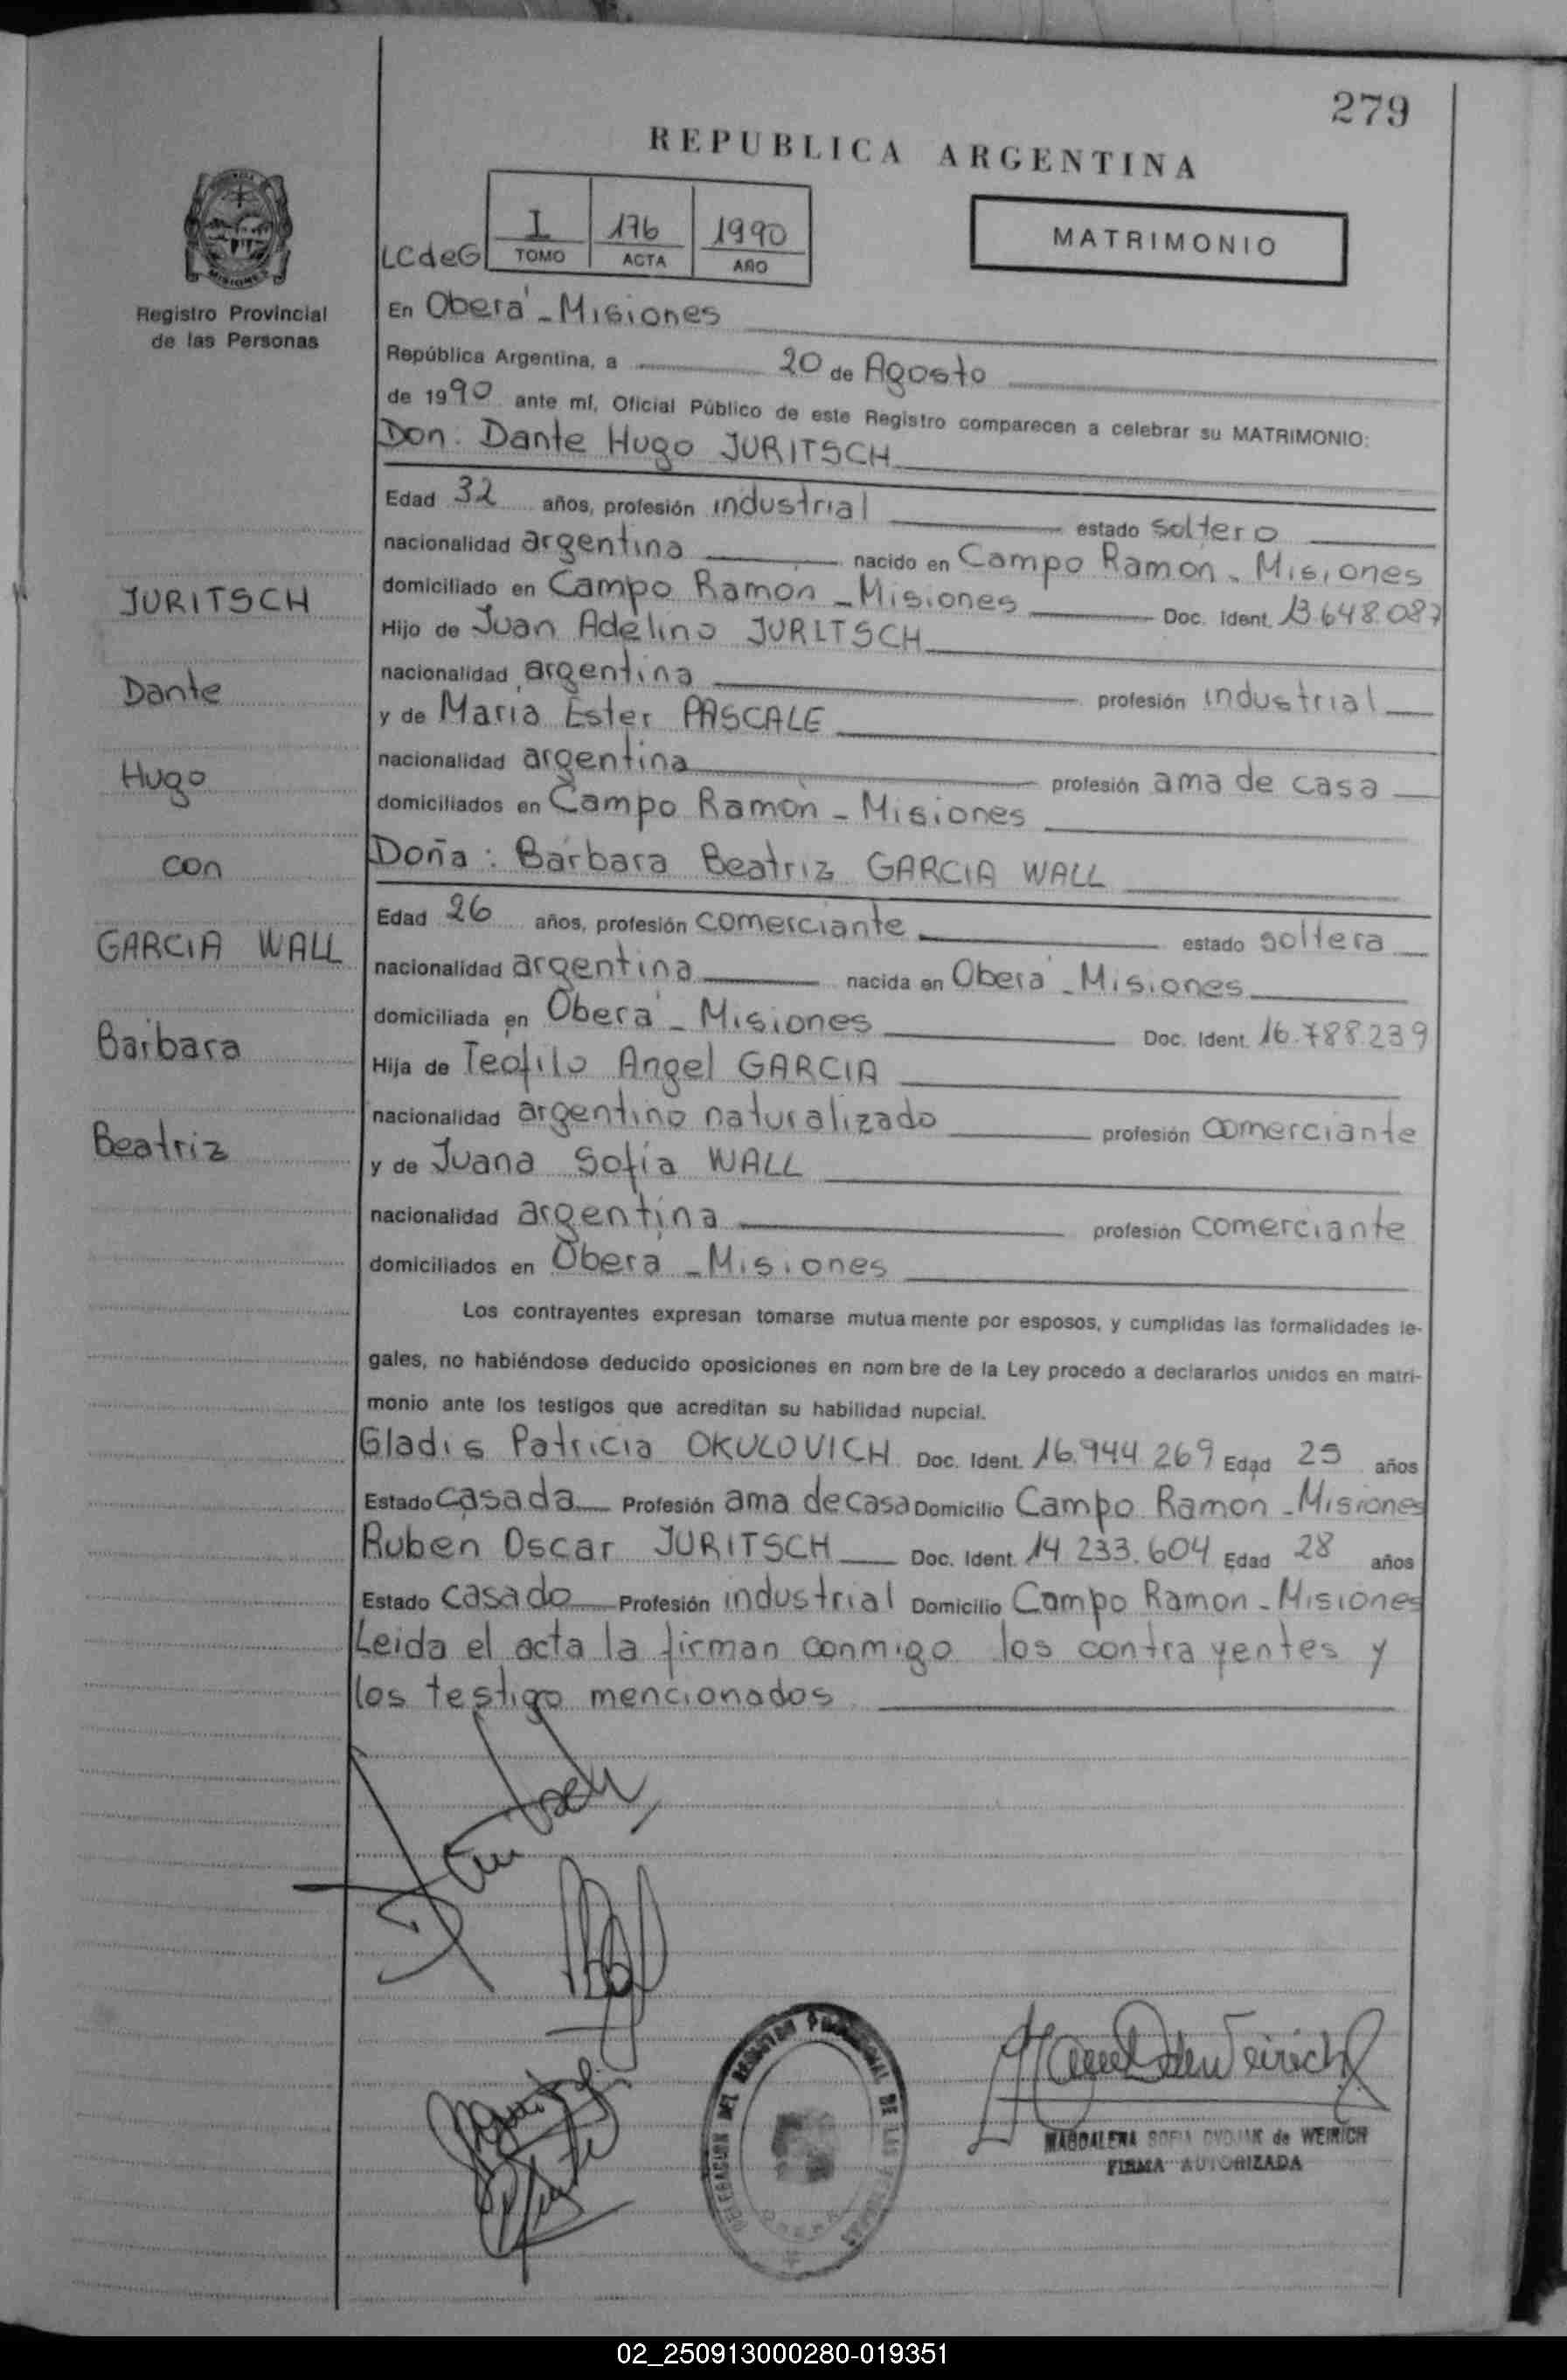 279
REPUBLICA ARGENTINA
LCdeG
I 176 1990
TOMO ACTA AÑO
MATRIMONIO
Registro Provincial
de las Personas
En Oberá - Misiones
República Argentina, a 20 de Agosto
de 1990 ante mí, Oficial Público de este Registro comparecen a celebrar su MATRIMONIO:
Don: Dante Hugo JURITSCH
Edad 32 años, profesión industrial estado soltero
nacionalidad argentina nacido en Campo Ramón - Misiones
domiciliado en Campo Ramón - Misiones Doc. Ident. 13.648.087
Hijo de Juan Adelino JURITSCH
nacionalidad argentina profesión industrial
y de Maria Ester PASCALE
nacionalidad argentina profesión ama de casa
domiciliados en Campo Ramón - Misiones
Doña: Bárbara Beatriz GARCIA WALL
Edad 26 años, profesión comerciante estado soltera
nacionalidad argentina nacida en Oberá - Misiones
domiciliada en Oberá - Misiones Doc. Ident. 16.788.239
Hija de Teófilo Angel GARCIA
nacionalidad argentino naturalizado profesión comerciante
y de Juana Sofía WALL
nacionalidad argentina profesión comerciante
domiciliados en Oberá - Misiones
Los contrayentes expresan tomarse mutua mente por esposos, y cumplidas las formalidades le-
gales, no habiéndose deducido oposiciones en nom bre de la Ley procedo a declararlos unidos en matri-
monio ante los testigos que acreditan su habilidad nupcial.
Gladis Patricia OKULOVICH Doc. Ident. 16.944.269 Edad 25 años
Estado casada Profesión ama de casa Domicilio Campo Ramon - Misiones
Ruben Oscar JURITSCH Doc. Ident. 14.233.604 Edad 28 años
Estado casado Profesión industrial Domicilio Campo Ramon - Misiones
Leida el acta la firman conmigo los contrayentes y
los testigo mencionados
JURITSCH
Dante
Hugo
con
GARCIA WALL
Bárbara
Beatriz
DELEGACION DEL REGISTRO PROVINCIAL DE LAS PERSONAS
OBERA
MAGDALENA SOFIA de WEIRICH
FIRMA AUTORIZADA
02_250913000280-019351